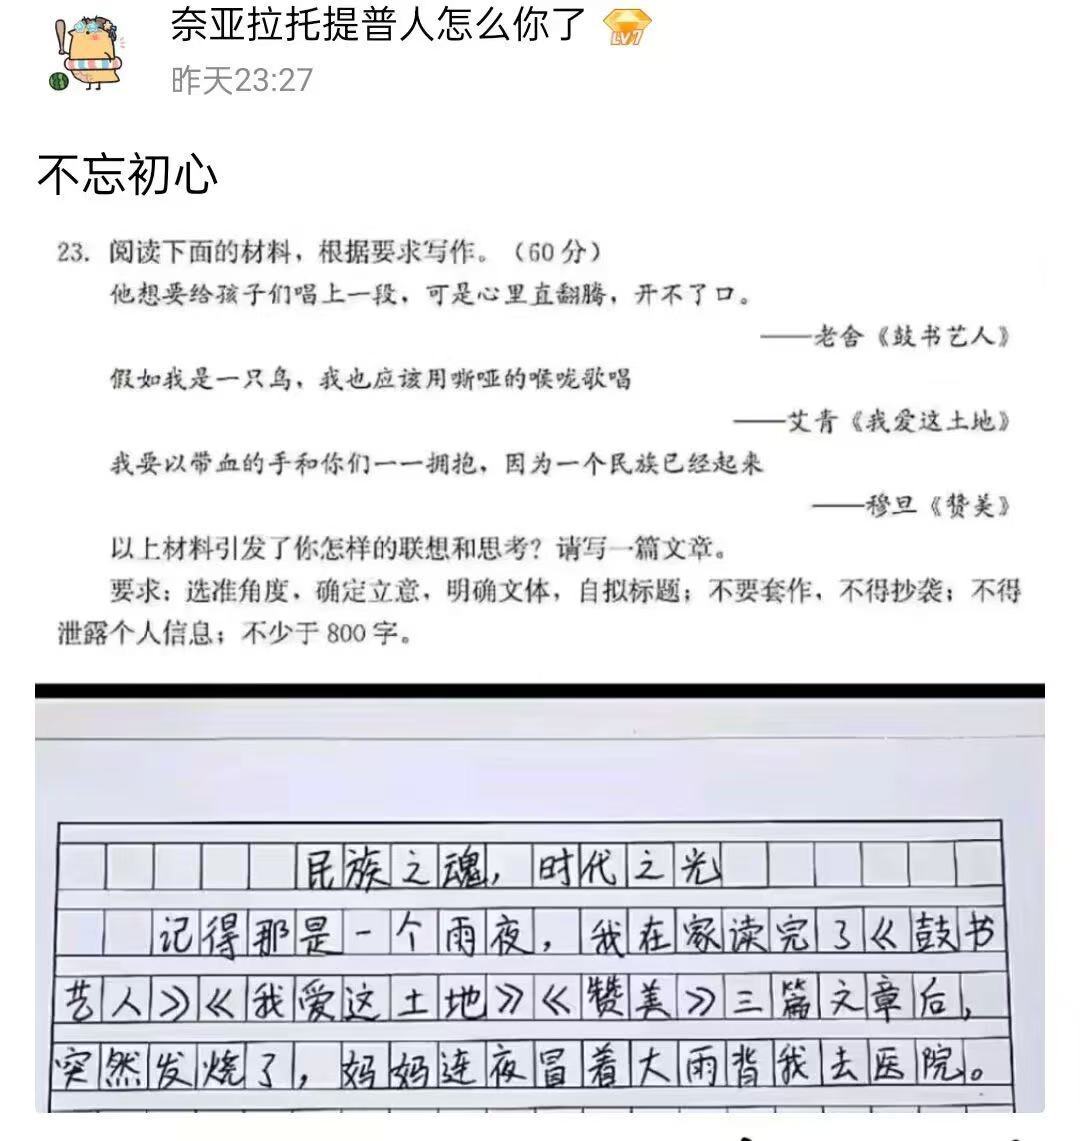 奈亚拉托提普人怎么你了
LV7
昨天23:27
不忘初心
23. 阅读下面的材料，根据要求写作。（60 分）
他想要给孩子们唱上一段，可是心里直翻腾，开不了口。
——老舍《鼓书艺人》
假如我是一只鸟，我也应该用嘶哑的喉咙歌唱
——艾青《我爱这土地》
我要以带血的手和你们一一拥抱，因为一个民族已经起来
——穆旦《赞美》
以上材料引发了你怎样的联想和思考？请写一篇文章。
要求：选准角度，确定立意，明确文体，自拟标题；不要套作，不得抄袭；不得
泄露个人信息；不少于 800 字。
民族之魂，时代之光
记得那是一个雨夜，我在家读完了《鼓书
艺人》《我爱这土地》《赞美》三篇文章后，
突然发烧了，妈妈连夜冒着大雨背我去医院。